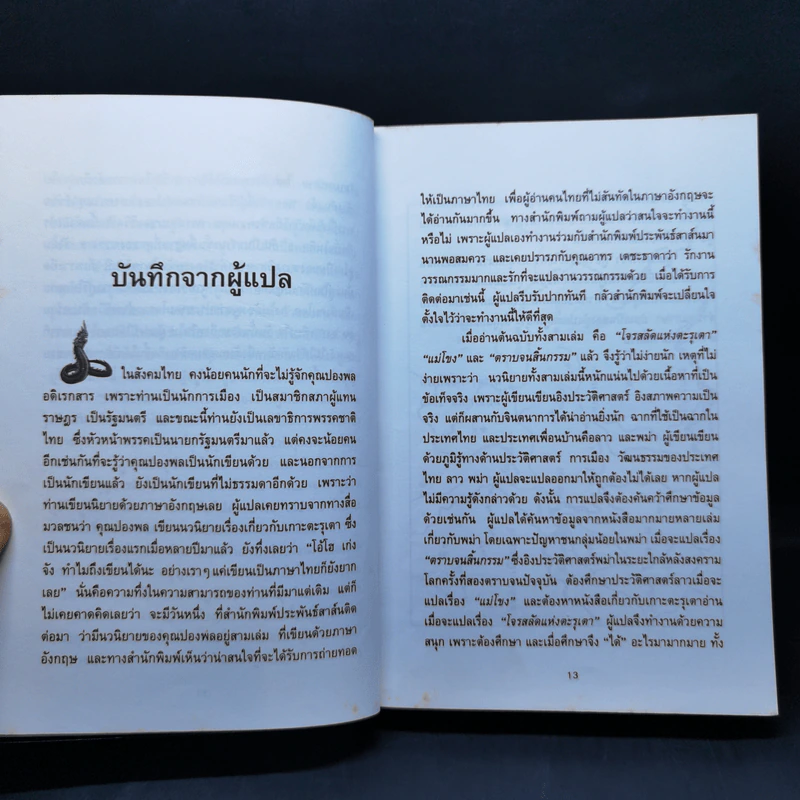 บันทึกจากผู้แปล
ในสังคมไทย คงน้อยคนนักที่จะไม่รู้จักคุณปองพล
อดิเรกสาร เพราะท่านเป็นนักการเมือง เป็นสมาชิกสภาผู้แทน
ราษฎร เป็นรัฐมนตรี และขณะนี้ท่านยังเป็นเลขาธิการพรรคชาติ
ไทย ซึ่งหัวหน้าพรรคเป็นนายกรัฐมนตรีมาแล้ว แต่คงจะน้อยคน
อีกเช่นกันที่จะรู้ว่าคุณปองพลเป็นนักเขียนด้วย และนอกจากการ
เป็นนักเขียนแล้ว ยังเป็นนักเขียนที่ไม่ธรรมดาอีกด้วย เพราะว่า
ท่านเขียนนิยายด้วยภาษาอังกฤษเลย ผู้แปลเคยทราบจากทางสื่อ
มวลชนว่า คุณปองพล เขียนนวนิยายเรื่องเกี่ยวกับเกาะตะรุเตา ซึ่ง
เป็นนวนิยายเรื่องแรกเมื่อหลายปีมาแล้ว ยังทึ่งเลยว่า "โอ้โฮ เก่ง
จัง ทำไมถึงเขียนได้นะ อย่างเราๆ แค่เขียนเป็นภาษาไทยก็ยังยาก
เลย" นั่นคือความทึ่งในความสามารถของท่านที่มีมาแต่เดิม แต่ก็
ไม่เคยคาดคิดเลยว่า จะมีวันหนึ่ง ที่สำนักพิมพ์ประพันธ์สาส์นติด
ต่อมา ว่ามีนวนิยายของคุณปองพลอยู่สามเล่ม ที่เขียนด้วยภาษา
อังกฤษ และทางสำนักพิมพ์เห็นว่าน่าสนใจที่จะได้รับการถ่ายทอด
ให้เป็นภาษาไทย เพื่อผู้อ่านคนไทยที่ไม่สันทัดในภาษาอังกฤษจะ
ได้อ่านกันมากขึ้น ทางสำนักพิมพ์ถามผู้แปลว่าสนใจจะทำงานนี้
หรือไม่ เพราะผู้แปลเองทำงานร่วมกับสำนักพิมพ์ประพันธ์สาส์นมา
นานพอสมควร และเคยปรารภกับคุณอาทร เตชะธาดาว่า รักงาน
วรรณกรรมมากและรักที่จะแปลงานวรรณกรรมด้วย เมื่อได้รับการ
ติดต่อมาเช่นนี้ ผู้แปลรีบรับปากทันที กลัวสำนักพิมพ์จะเปลี่ยนใจ
ตั้งใจไว้ว่าจะทำงานนี้ให้ดีที่สุด
เมื่ออ่านต้นฉบับทั้งสามเล่ม คือ "โจรสลัดแห่งตะรุเตา"
"แม่โขง" และ "ตราบจนสิ้นกรรม" แล้ว จึงรู้ว่าไม่ง่ายนัก เหตุที่ไม่
ง่ายเพราะว่า นวนิยายทั้งสามเล่มนี้หนักแน่นไปด้วยเนื้อหาที่เป็น
ข้อเท็จจริง เพราะผู้เขียนเขียนอิงประวัติศาสตร์ อิงสภาพความเป็น
จริง แต่ก็ผสานกับจินตนาการได้น่าอ่านยิ่งนัก ฉากที่ใช้เป็นฉากใน
ประเทศไทย และประเทศเพื่อนบ้านคือลาว และพม่า ผู้เขียนเขียน
ด้วยภูมิรู้ทางด้านประวัติศาสตร์ การเมือง วัฒนธรรมของประเทศ
ไทย ลาว พม่า ผู้แปลจะแปลออกมาให้ถูกต้องไม่ได้เลย หากผู้แปล
ไม่มีความรู้ดังกล่าวด้วย ดังนั้น การแปลจึงต้องค้นคว้าศึกษาข้อมูล
ด้วยเช่นกัน ผู้แปลได้ค้นหาข้อมูลจากหนังสือมากมายหลายเล่ม
เกี่ยวกับพม่า โดยเฉพาะปัญหาชนกลุ่มน้อยในพม่า เมื่อจะแปลเรื่อง
"ตราบจนสิ้นกรรม" ซึ่งอิงประวัติศาสตร์พม่าในระยะใกล้หลังสงคราม
โลกครั้งที่สองตราบจนปัจจุบัน ต้องศึกษาประวัติศาสตร์ลาวเมื่อจะ
แปลเรื่อง "แม่โขง" และต้องหาหนังสือเกี่ยวกับเกาะตะรุเตาอ่าน
เมื่อจะแปลเรื่อง "โจรสลัดแห่งตะรุเตา" ผู้แปลจึงทำงานด้วยความ
สนุก เพราะต้องศึกษา และเมื่อศึกษาจึง "ได้" อะไรมามากมาย ทั้ง
13